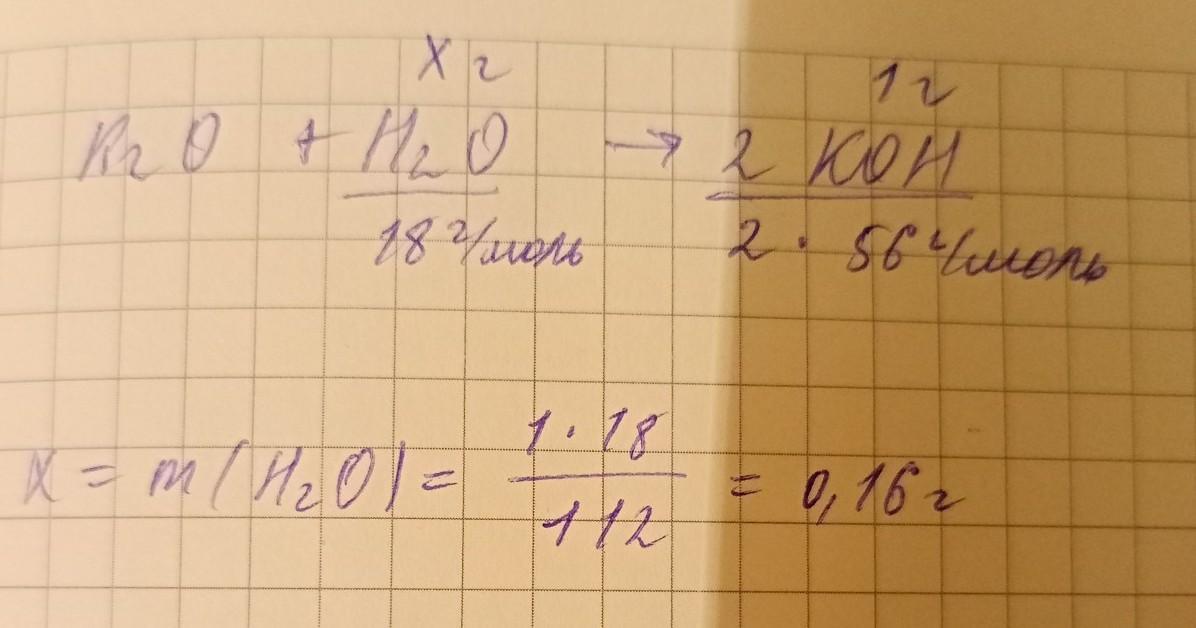 x г 1 г
K₂O + H₂O → 2 KOH
18 г/моль 2 · 56 г/моль
x = m(H₂O) = 1 · 18 / 112 = 0,16 г